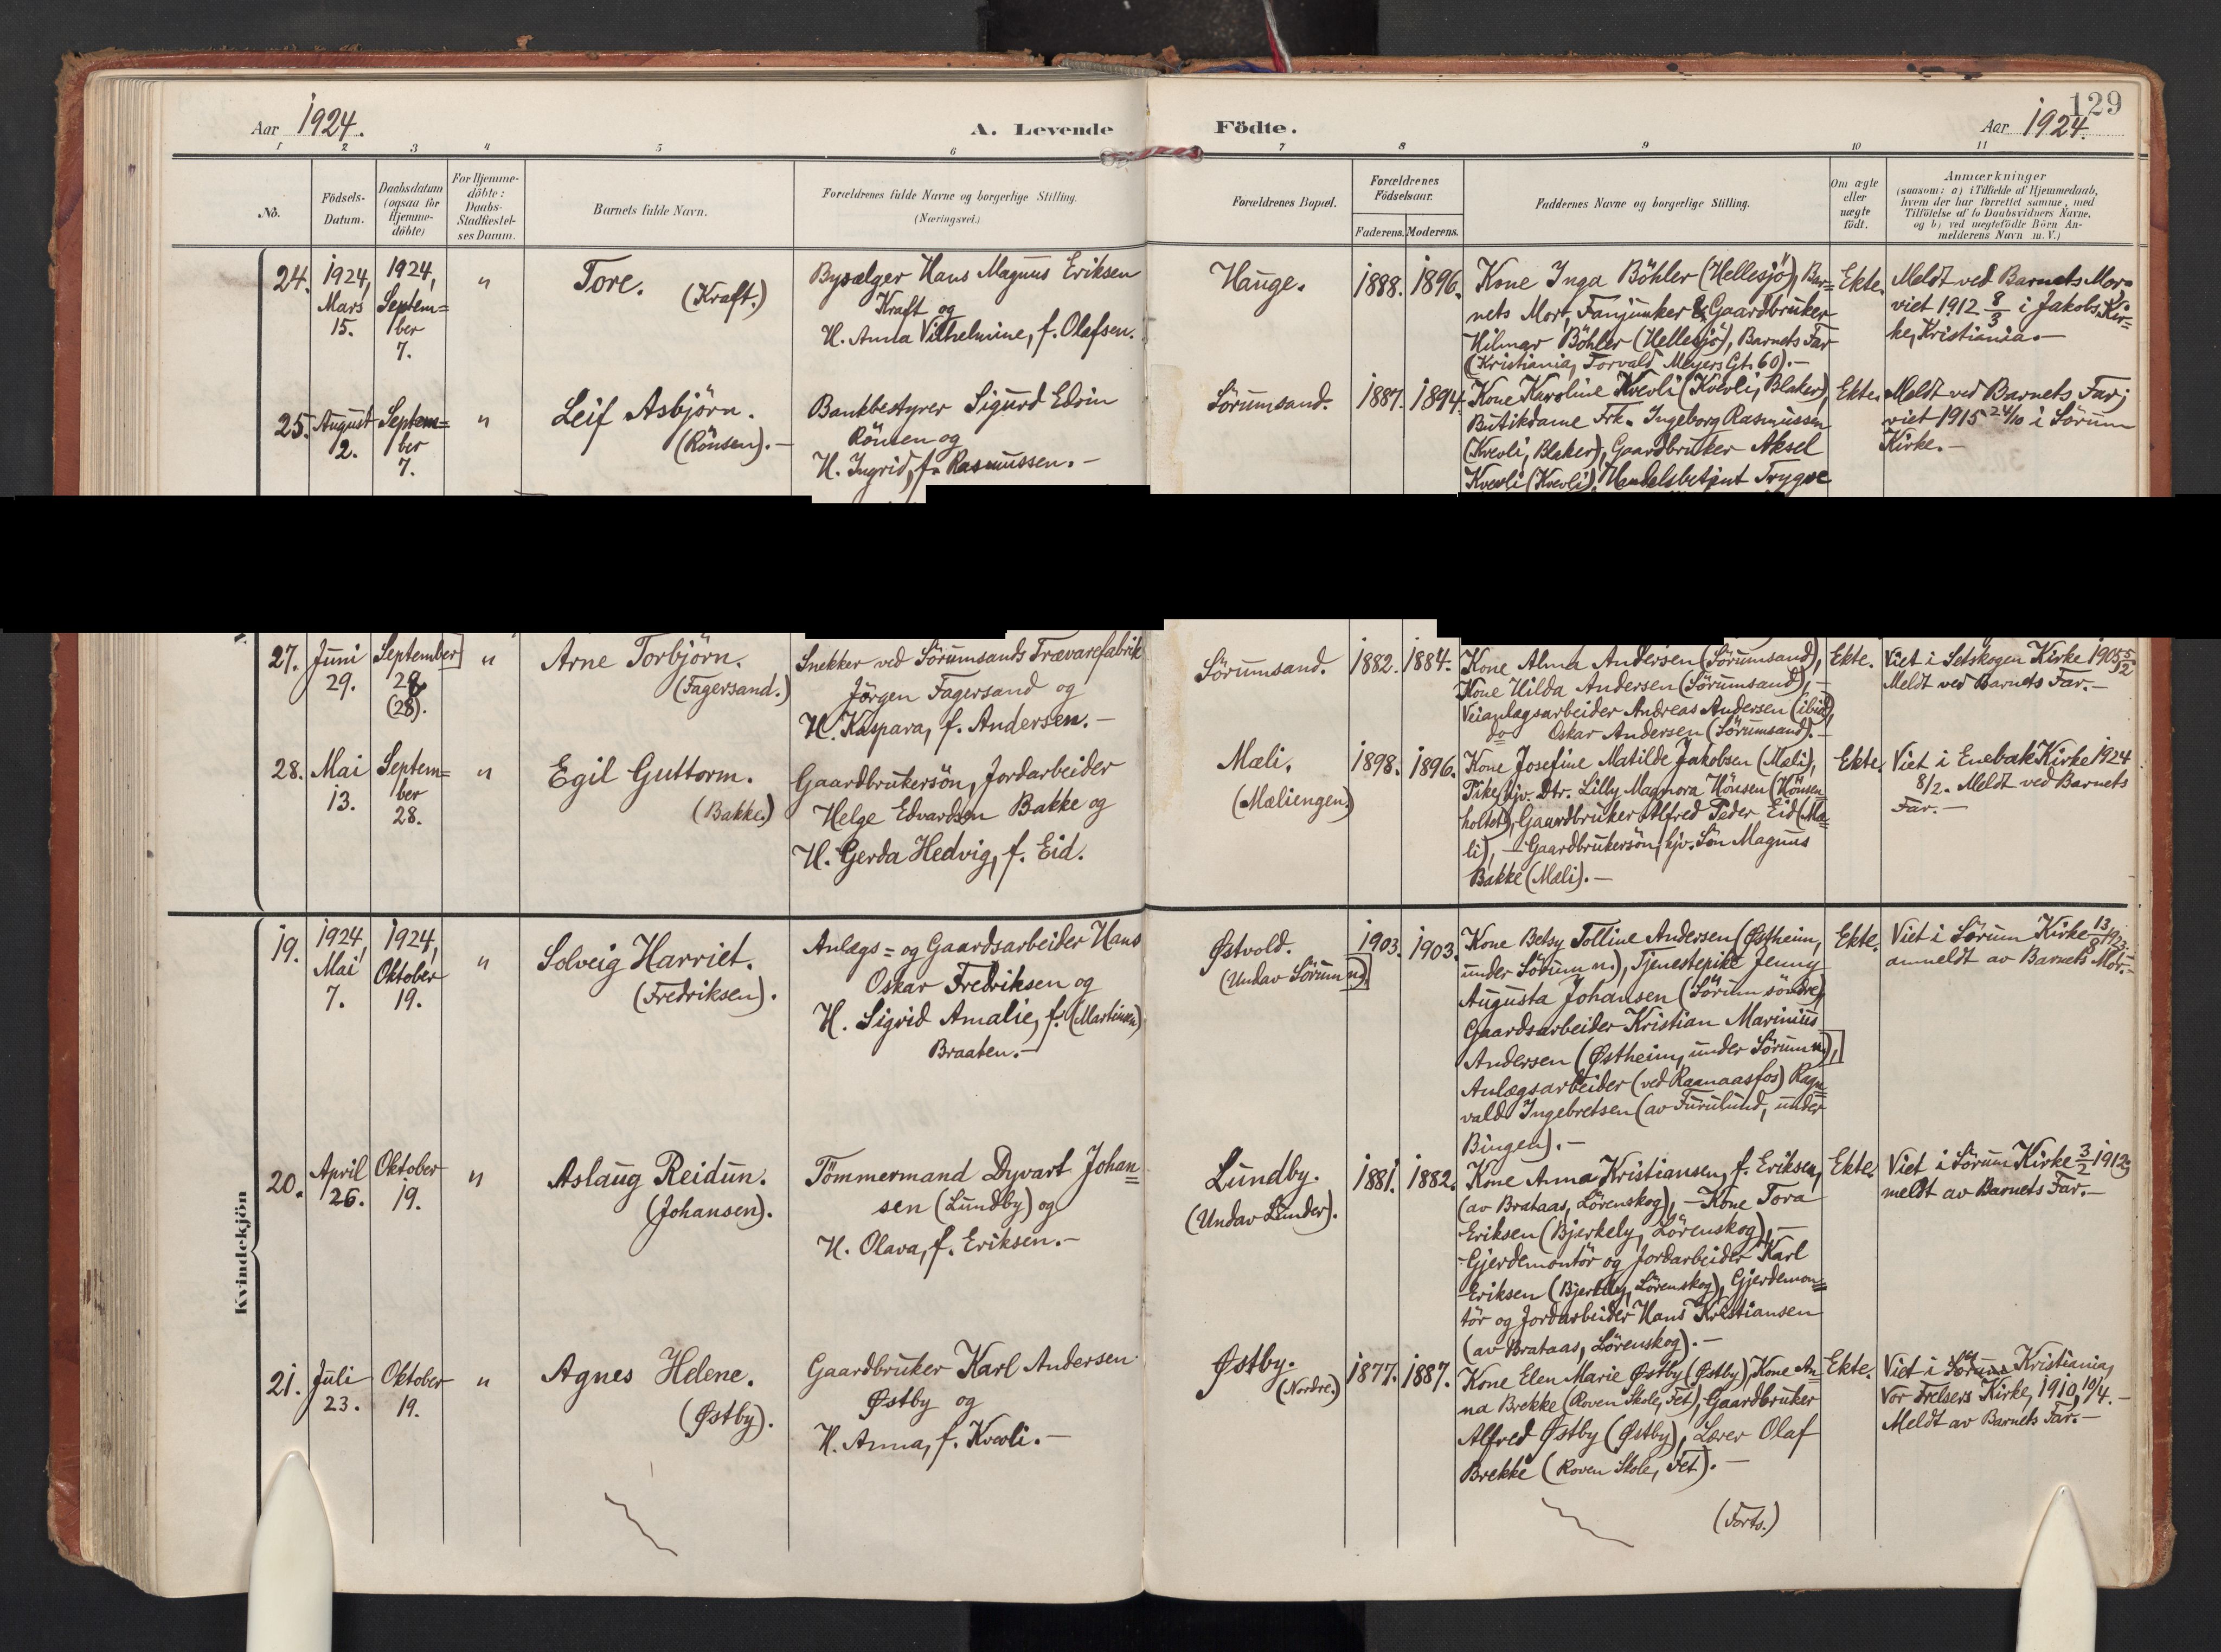 Aar 1924.
A. Levende
Födte.
129
Aar 1924.
1 2 3 4 5 6 7 8 9 10 11
No.
Födsels-
Datum.
Daabsdatum
(ogsaa for
Hjemme-
döbte)
For Hjemme-
döbte:
Daabs-
Stadfæstel-
ses Datum.
Barnets fulde Navn.
Forældrenes fulde Navne og borgerlige Stilling.
(Næringsvei.)
Forældrenes Bopæl.
Forældrenes
Födselsaar.
Faderens.
Moderens.
Faddernes Navne og borgerlige Stilling.
Om ægte
eller
uægte
födt.
Anmærkninger
(saasom: a) i Tilfælde af Hjemmedaab,
hvem der har forrettet samme, med
Tilföielse af to Daabsvidners Navne,
og b) ved uægtefödte Börn An-
melderens Navn m. V.)
24.
1924,
Mars
15.
1924,
Septem=
ber
7.
"
Tore.
(Kraft.)
Bysælger Hans Magnus Eriksen
Kraft og
H. Anna Vilhelmine, f. Olafsen.
Hauge.
1888.
1896.
Kone Inga Böhler (Hellesjö), Bar=
nets Mor, Fanjunker & Gaardbruker
Hilmar Böhler (Hellesjö), Barnets Far
(Kristiania, Torvald Meyers Gt. 60). –
Ekte.
Meldt ved Barnets Mor,
viet 1912 8/3 i Jakobs Kir=
ke, Kristiania. –
25.
August
2.
Septem=
ber
7.
"
Leif Asbjörn.
(Rönsen). –
Bankbestyrer Sigurd Edvin
Rönsen og
H. Ingrid, f. Rasmussen. –
Sörumsand.
1887.
1894.
Kone Karoline Kvevli (Kvevli, Blaker),
Butikdame Frk. Ingeborg Rasmussen
(Kvevli, Blaker), Gaardbruker Aksel
Kvevli (Kvevli), Handelsbetjent Trygve
Ekte.
Meldt ved Barnets Far;
viet 1915 24/10 i Sörum
Kirke. –
27.
Juni
29.
September
28
(28).
"
Arne Torbjörn.
(Fagersand.)
Snekker ved Sörumsands Trævarefabrik
Jörgen Fagersand og
H. Kaspara, f. Andersen. –
Sörumsand.
1882.
1884.
Kone Alma Andersen (Sörumsand),
Kone Hilda Andersen (Sörumsand), –
Veianlagsarbeider Andreas Andersen (ibid),
do Oskar Andersen (Sörumsand). –
Ekte.
Viet i Setskogen Kirke 1905 5/12
Meldt ved Barnets Far. –
28.
Mai
13.
Septem=
ber
28.
"
Egil Guttorm.
(Bakke.)
Gaardbrukersön, Jordarbeider
Helge Edvardsen Bakke og
H. Gerda Hedvig, f. Eid.
Mæli.
(Mæliengen)
1898.
1896.
Kone Josefine Matilde Jakobsen (Mæli),
Pike, hjv. Dtr. Lilly Magnora Hönsen (Hönsen=
holtet), Gaardbruker Alfred Peder Eid (Mæ=
li), – Gaardbrukersön, hjv. Sön Magnus
Bakke (Mæli). –
Ekte.
Viet i Enebak Kirke 1924
8/2. Meldt ved Barnets
Far. –
Kvindekjön
19.
1924,
Mai
7.
1924,
Oktober
19.
"
Solveig Harriet.
(Fredriksen).
Anlægs= og Gaardsarbeider Hans
Oskar Fredriksen og
H. Sigrid Amalie, f. (Martinsen)
Braaten. –
Østvold.
(Undav Sörum n.)
1903.
1903.
Kone Betsy Tolline Andersen (Østheim,
under Sörum n.), Tjenestepike Jenny
Augusta Johansen (Sörum söndre),
Gaardsarbeider Kristian Marinius
Andersen (Østheim, under Sörum n.),
Anlægsarbeider (ved Raanaasfos) Ragn=
vald Ingebretsen (av Furulund, under
Bingen). –
Ekte.
Viet i Sörum Kirke 13/8 1923.
anmeldt av Barnets Mor. –
20.
April
26.
Oktober
19.
"
Aslaug Reidun.
(Johansen).
Tömmermand Dyvart Johan=
sen (Lundby) og
H. Olava, f. Eriksen. –
Lundby.
(Undav Lunder).
1881.
1882.
Kone Anna Kristiansen, f. Eriksen,
(av Brataas, Lörenskog), – Kone Tora
Eriksen (Bjerkely, Lörenskog), –
Gjerdemontör og Jordarbeider Karl
Eriksen (Bjerkely, Lörenskog), Gjerdemon=
tör og Jordarbeider Hans Kristiansen
(av Brataas, Lörenskog). –
Ekte.
Viet i Sörum Kirke 3/2 1912,
meldt av Barnets Far. –
21.
Juli
23.
Oktober
19.
"
Agnes Helene.
(Østby).
Gaardbruker Karl Andersen
Østby og
H. Anna, f. Kvevli. –
Østby.
(Nordre.)
1877.
1887.
Kone Elen Marie Østby (Østby), Kone An=
na Brekke (Roven Skole, Fet), Gaardbruker
Alfred Østby (Østby), Lærer Olaf
Brekke (Roven Skole, Fet). –
Ekte.
Viet i Kristiania,
Vor Frelsers Kirke, 1910, 10/4. –
Meldt av Barnets Far. –
(Forts.)